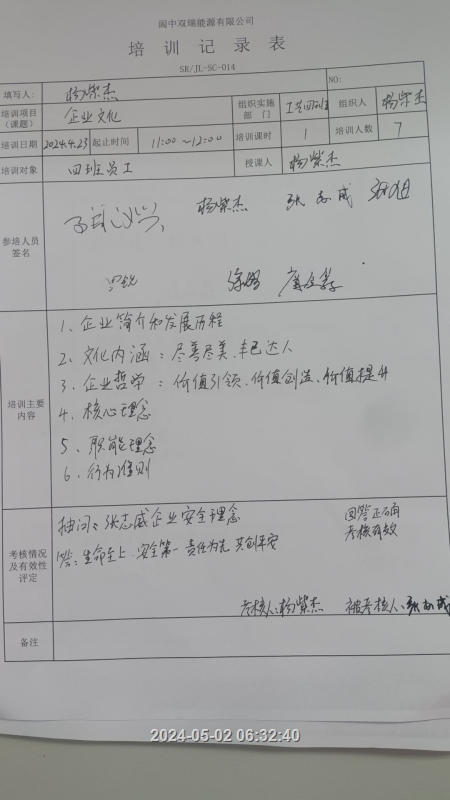 阆中双瑞能源有限公司
培训记录表
SR/JL-SC-014
填写人: 杨紫杰 NO:
培训项目(课题) 企业文化 组织实施部门 工艺四班 组织人 杨紫杰
培训日期 2024.4.23 起止时间 11:00~12:00 培训课时 1 培训人数 7
培训对象 四班员工 授课人 杨紫杰
参培人员签名 杨紫杰 张志威
培训主要内容
1、企业简介和发展历程
2、文化内涵:尽善尽美、丰己达人
3、企业哲学:价值引领、价值创造、价值提升
4、核心理念
5、职能理念
6、行为准则
考核情况及有效性评定
抽问:张志威企业安全理念 回答正确
答:生命至上、安全第一、责任为先、共创平安 考核有效
考核人:杨紫杰 被考核人:张志威
备注
2024-05-02 06:32:40